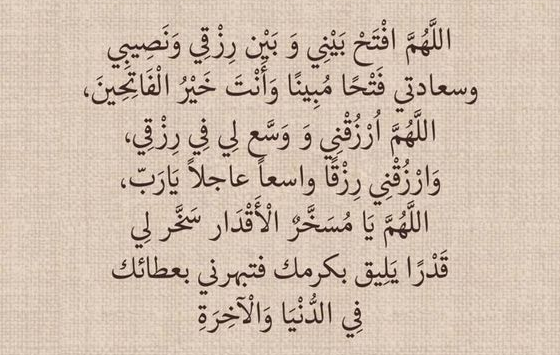 اللَّهُمَّ افْتَحْ بَيْنِي وَ بَيْن رِزْقِي وَنَصِيبِي
وسعادتي فَتْحًا مُبِينًا وَأَنْتَ خَيْرُ الْفَاتِحِينَ،
اللَّهُمَّ اُرْزُقْنِي وَ وَسَّع لِي فِي رِزْقِي،
وَارْزُقْنِي رِزْقًا واسعاً عاجلاً يَارَبّ،
اللَّهُمَّ يَا مُسَخَّرُ الْأَقْدَار سَخَّر لِي
قَدْرًا يَلِيق بكرمك فتبهرني بعطائك
فِي الدُّنْيَا وَالْآخِرَةِ